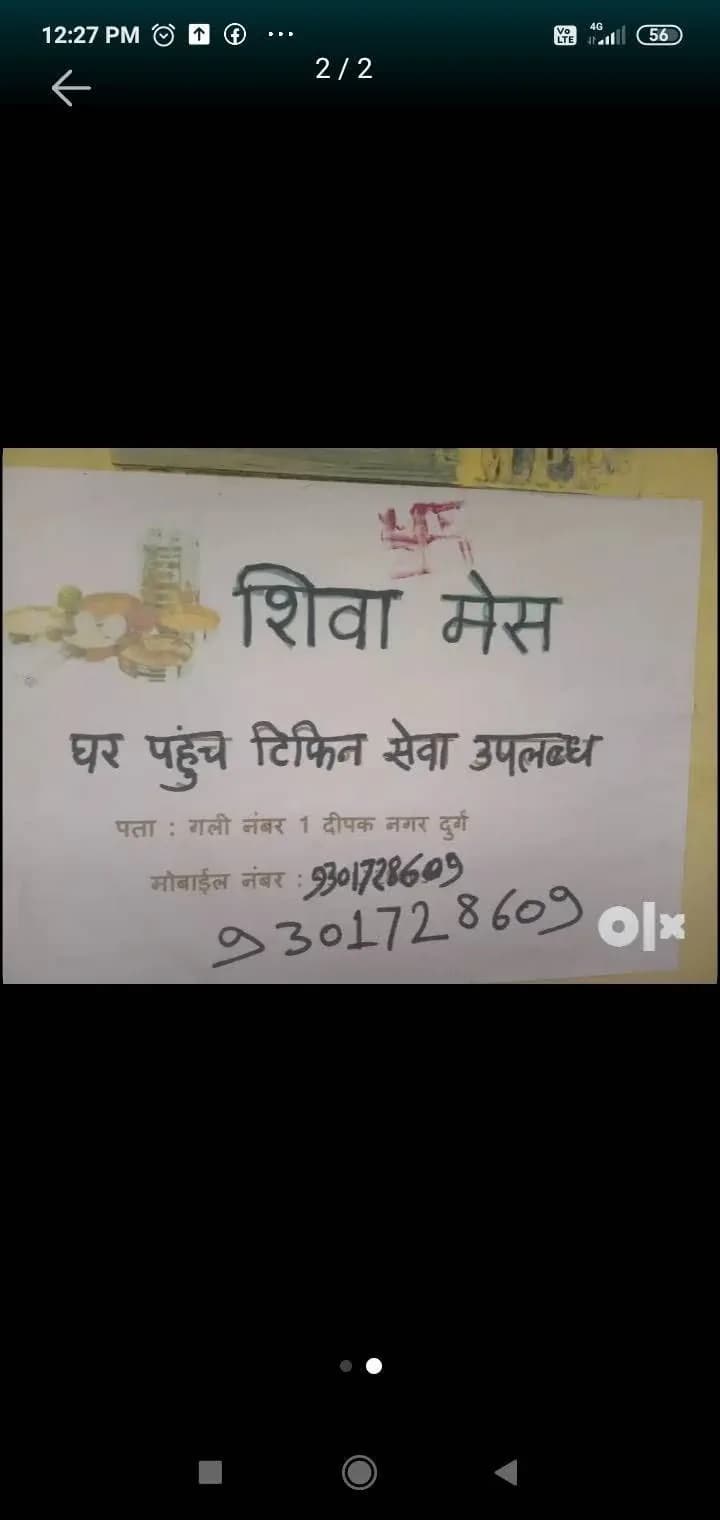 12:27 PM
Vo LTE 4G 56
2 / 2
शिवा मेस
घर पहुंच टिफिन सेवा उपलब्ध
पता : गली नंबर 1 दीपक नगर दुर्ग
मोबाईल नंबर : 9301728609
9301728609
olx